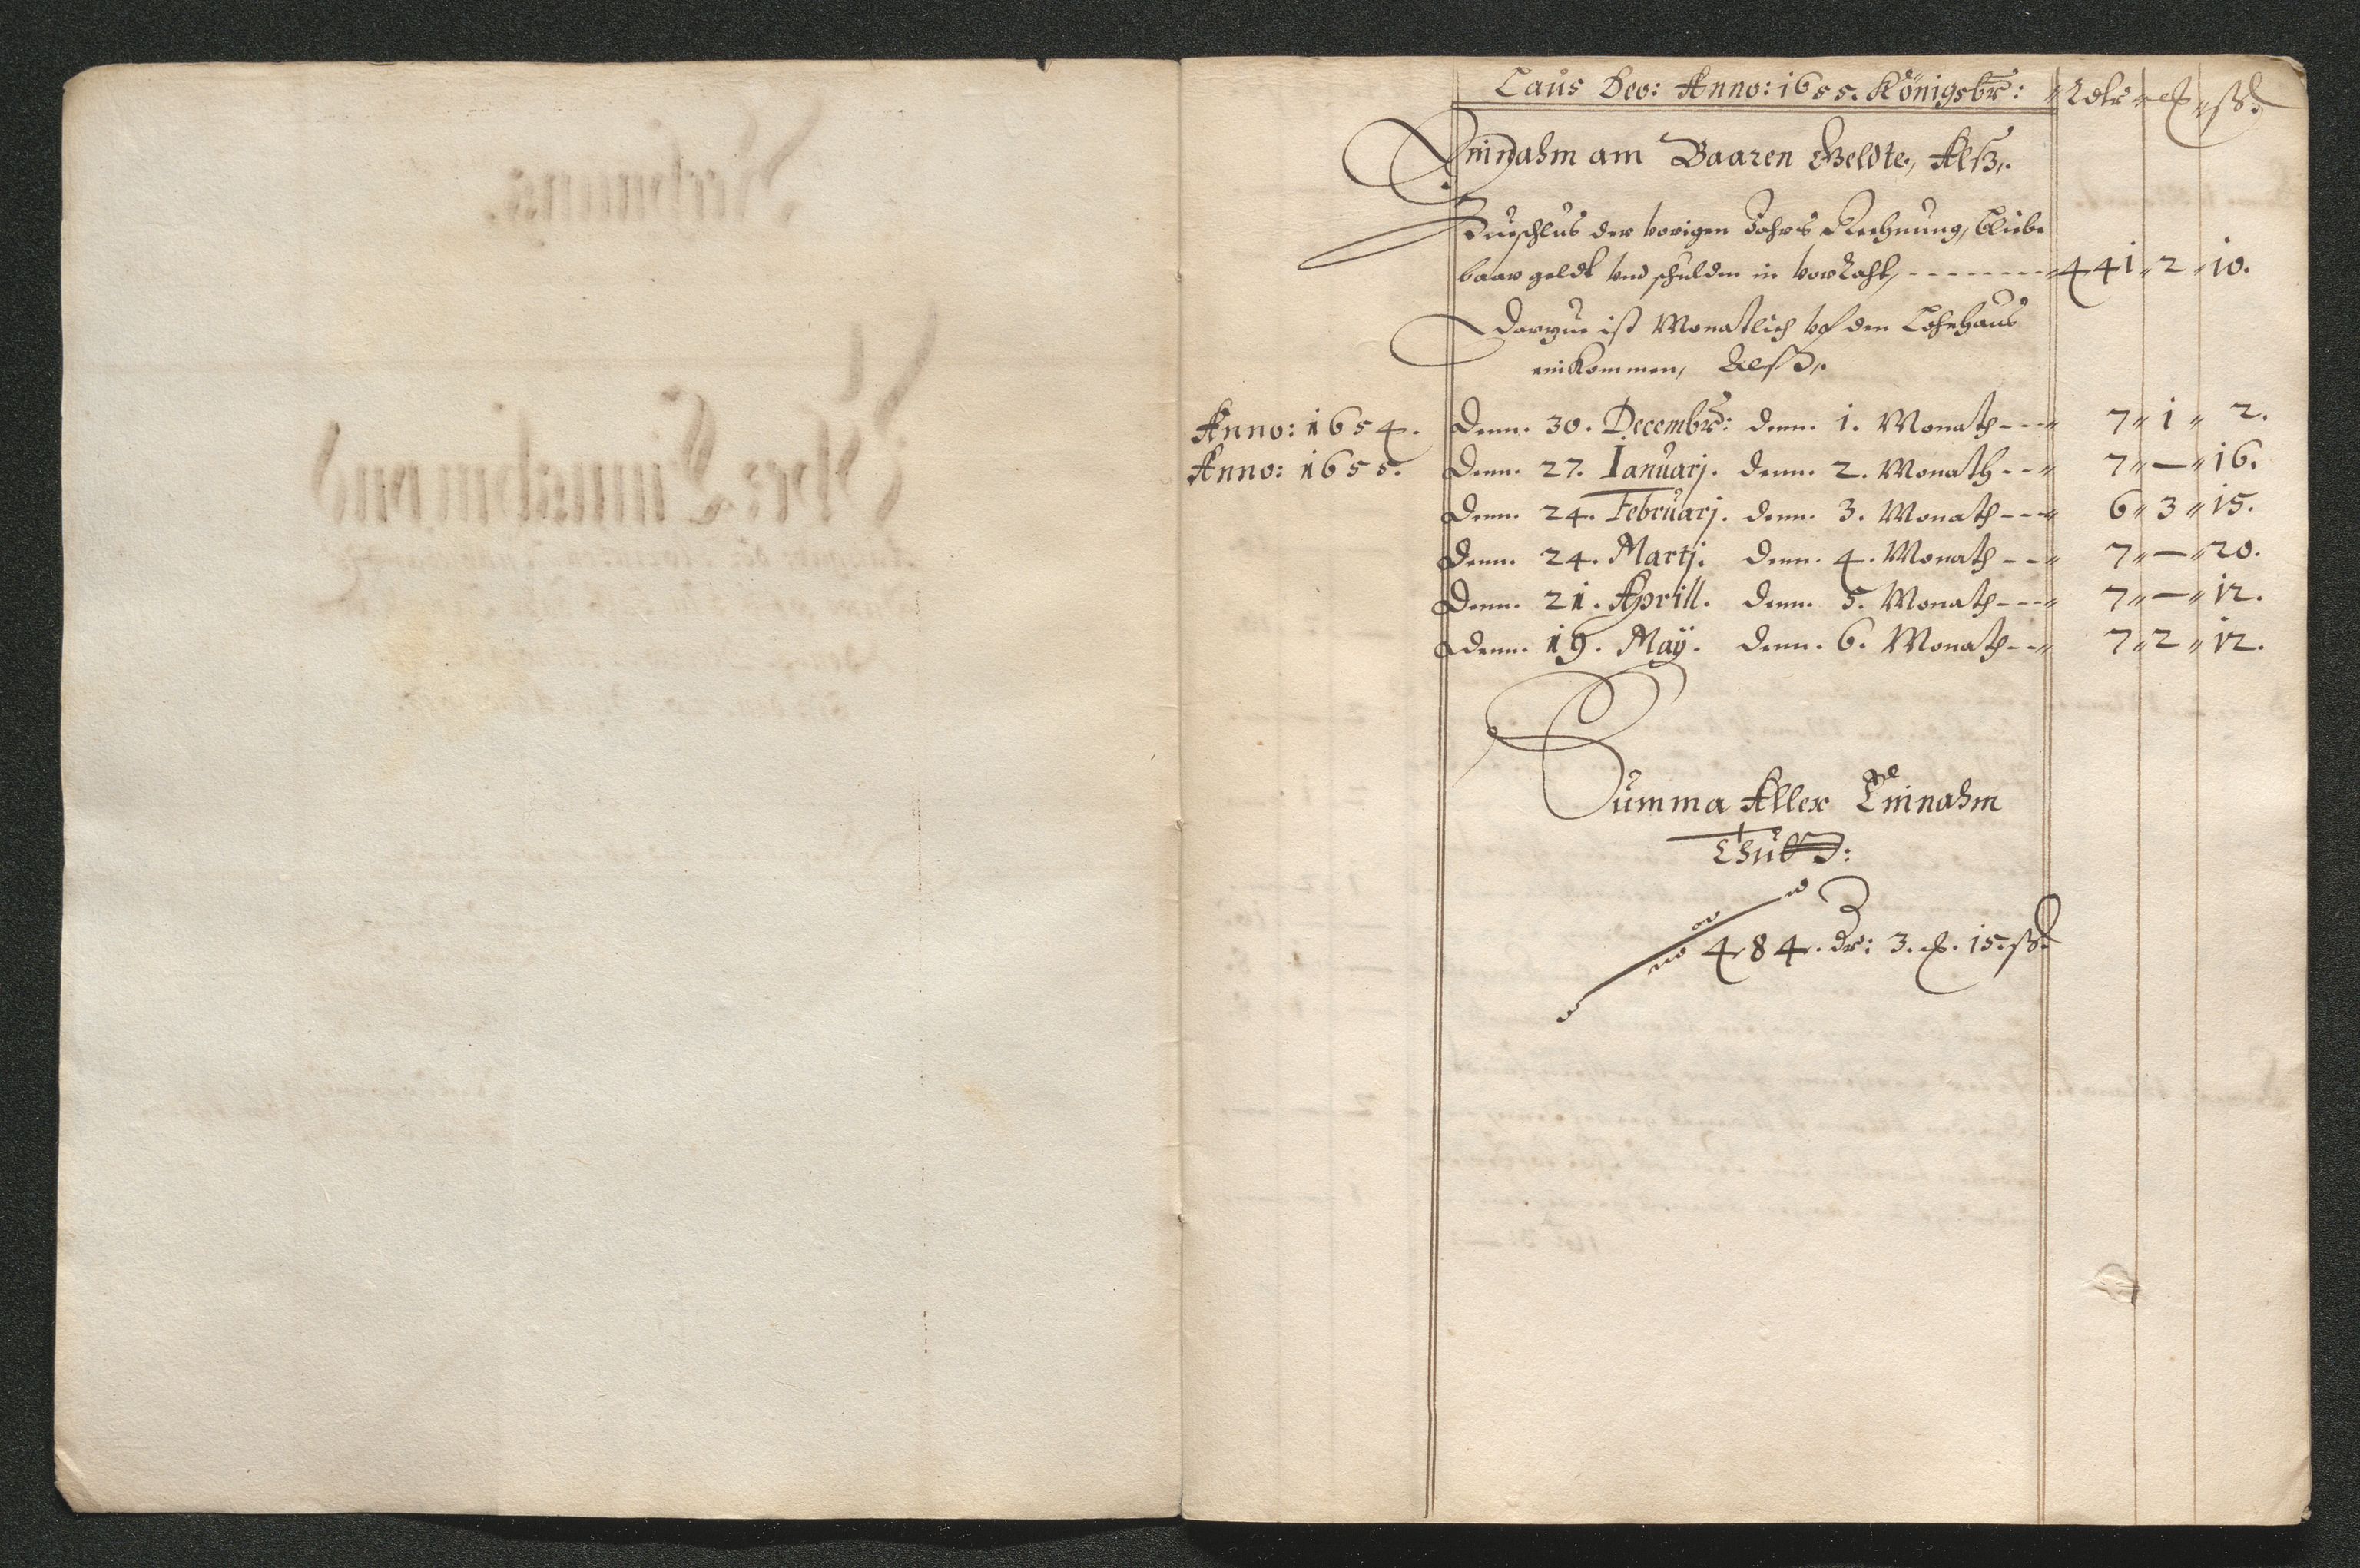 Laus Deo: Anno: 1655. Königsbr: Rdlr
Einnahm am Baaren Geldte, Alß,.
Zueschlus der vorigen Jahrs Rechnung, bliebe
baar geldt vnd schulden in vorRaht, - - - - - - - - 441 " 2 " 10.
Darzue ist Monatlich vf den Lohehaus
einkommen, Alß,.
Anno: 1654. Denn. 30. Decembr: denn. 1. Monath - - - " 7 " 1 " 2.
Anno: 1655. Denn. 27. Ianuarj. denn. 2. Monath - - " 7 " — " 16.
Denn. 24. Februarj. denn. 3. Monath - - - " 6 " 3 " 15.
Denn. 24. Martj. denn. 4. Monath - - " 7 " — " 20.
Denn. 21. Aprill. denn. 5. Monath - - - " 7 " — " 12.
Denn. 19. Maÿ. denn. 6. Monath - - " 7 " 2 " 12.
Summa Aller Einnahm
Thutt:
484. dr: 3. 15. ß